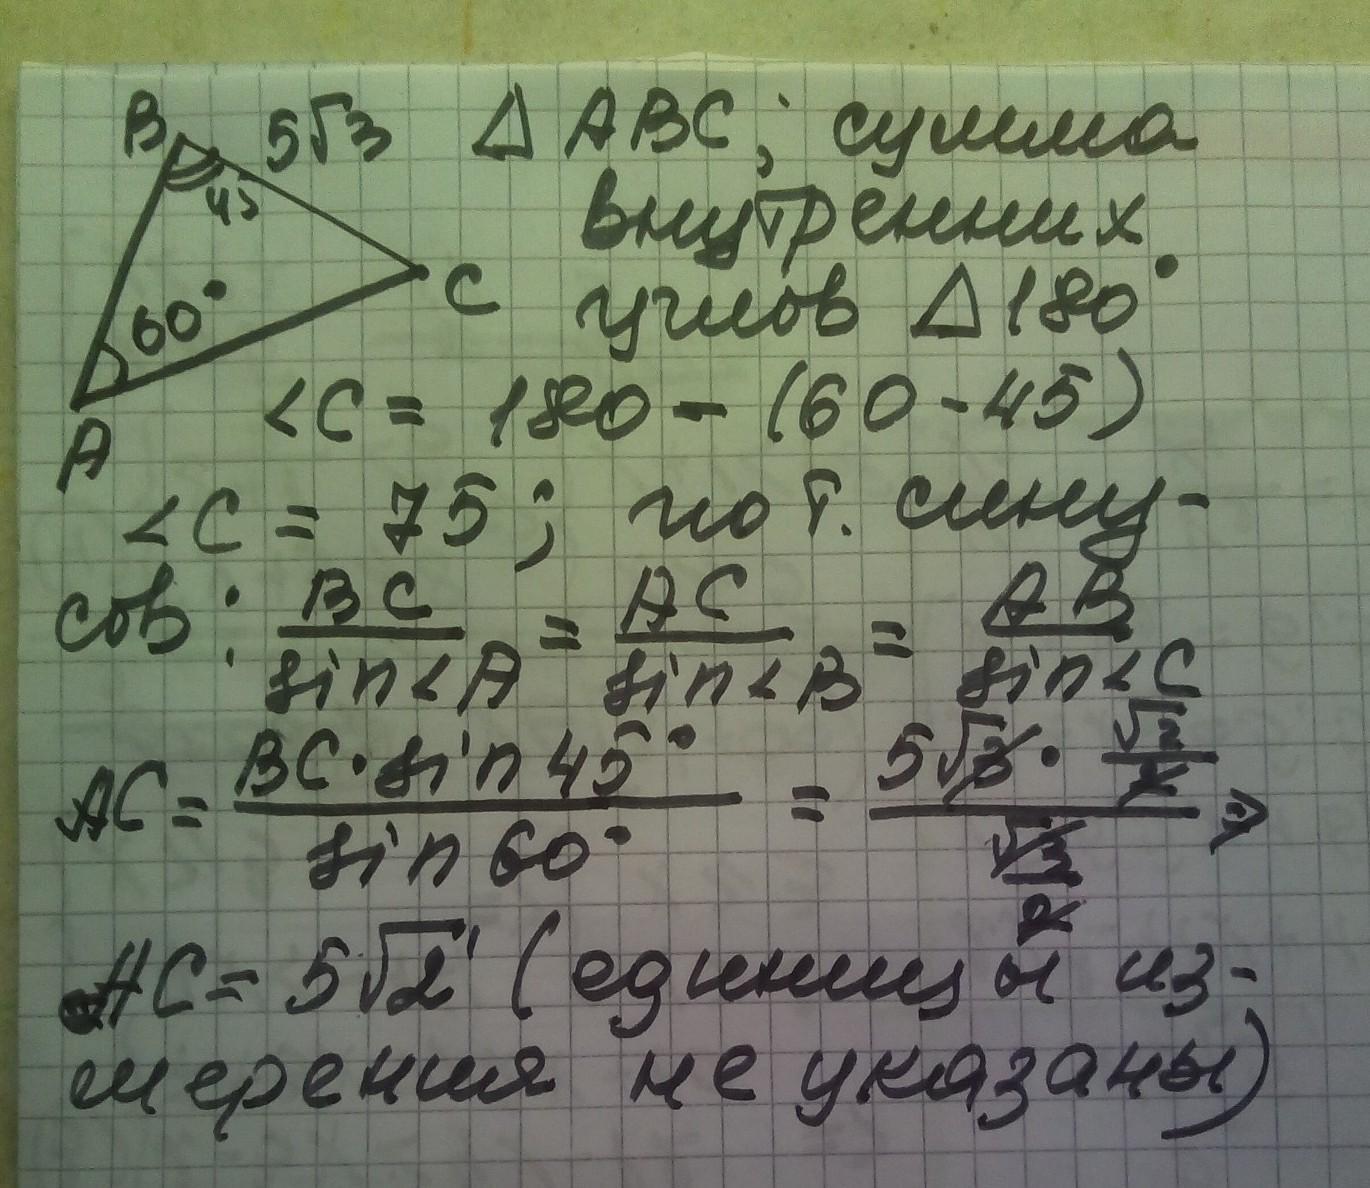 B 5√3 Δ ABC; сумма
45 внутренних
60° C углов Δ 180°
A <C = 180 - (60 - 45)
<C = 75; по т. сину-
сов: BC/sin<A = AC/sin<B = AB/sin<C
AC = BC·sin 45°/sin 60° = 5√3·√2/2/√3/2 ⇒
AC = 5√2 (единицы из-
мерения не указаны)